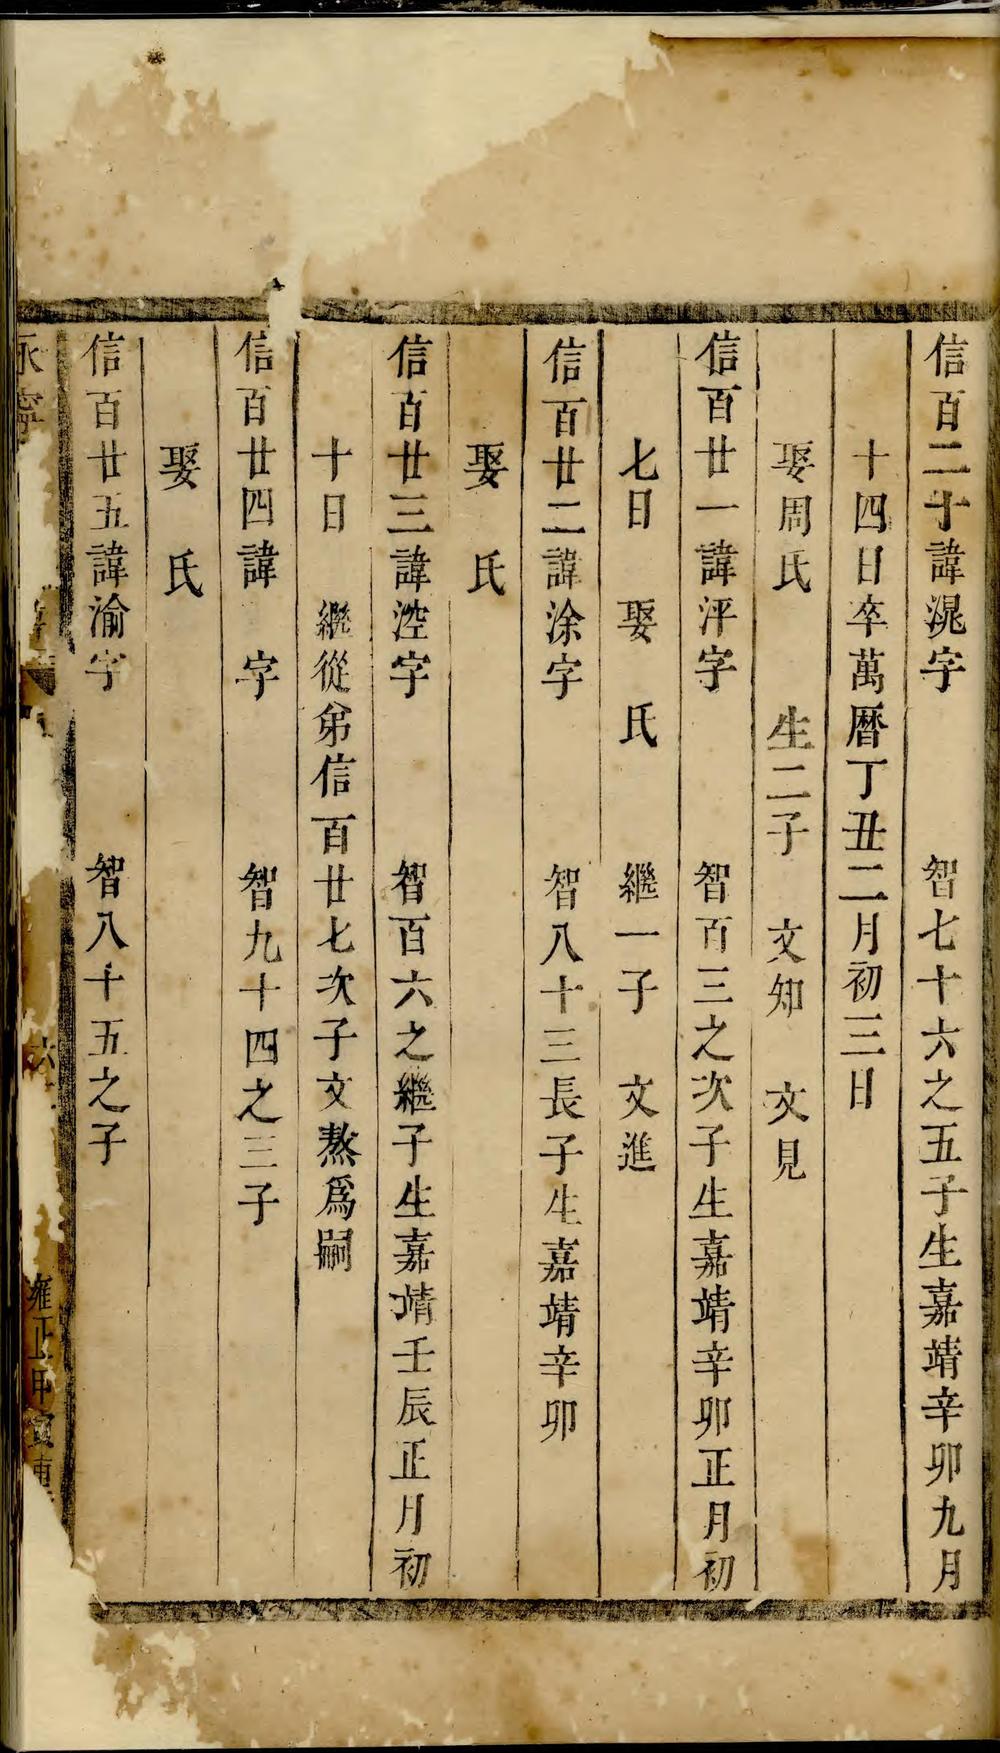 信百二十諱滉字　智七十六之五子生嘉靖辛卯九月
十四日卒萬曆丁丑二月初三日
娶周氏　生二子　文知　文見
信百廿一諱泙字　智百三之次子生嘉靖辛卯正月初
七日　娶　氏　繼一子　文進
信百廿二諱涂字　智八十三長子生嘉靖辛卯
娶　氏
信百廿三諱涳字　智百六之繼子生嘉靖壬辰正月初
十日　繼從弟信百廿七次子文熬爲嗣
信百廿四諱　字　智九十四之三子
娶　氏
信百廿五諱渝字　智八十五之子
雍正甲寅